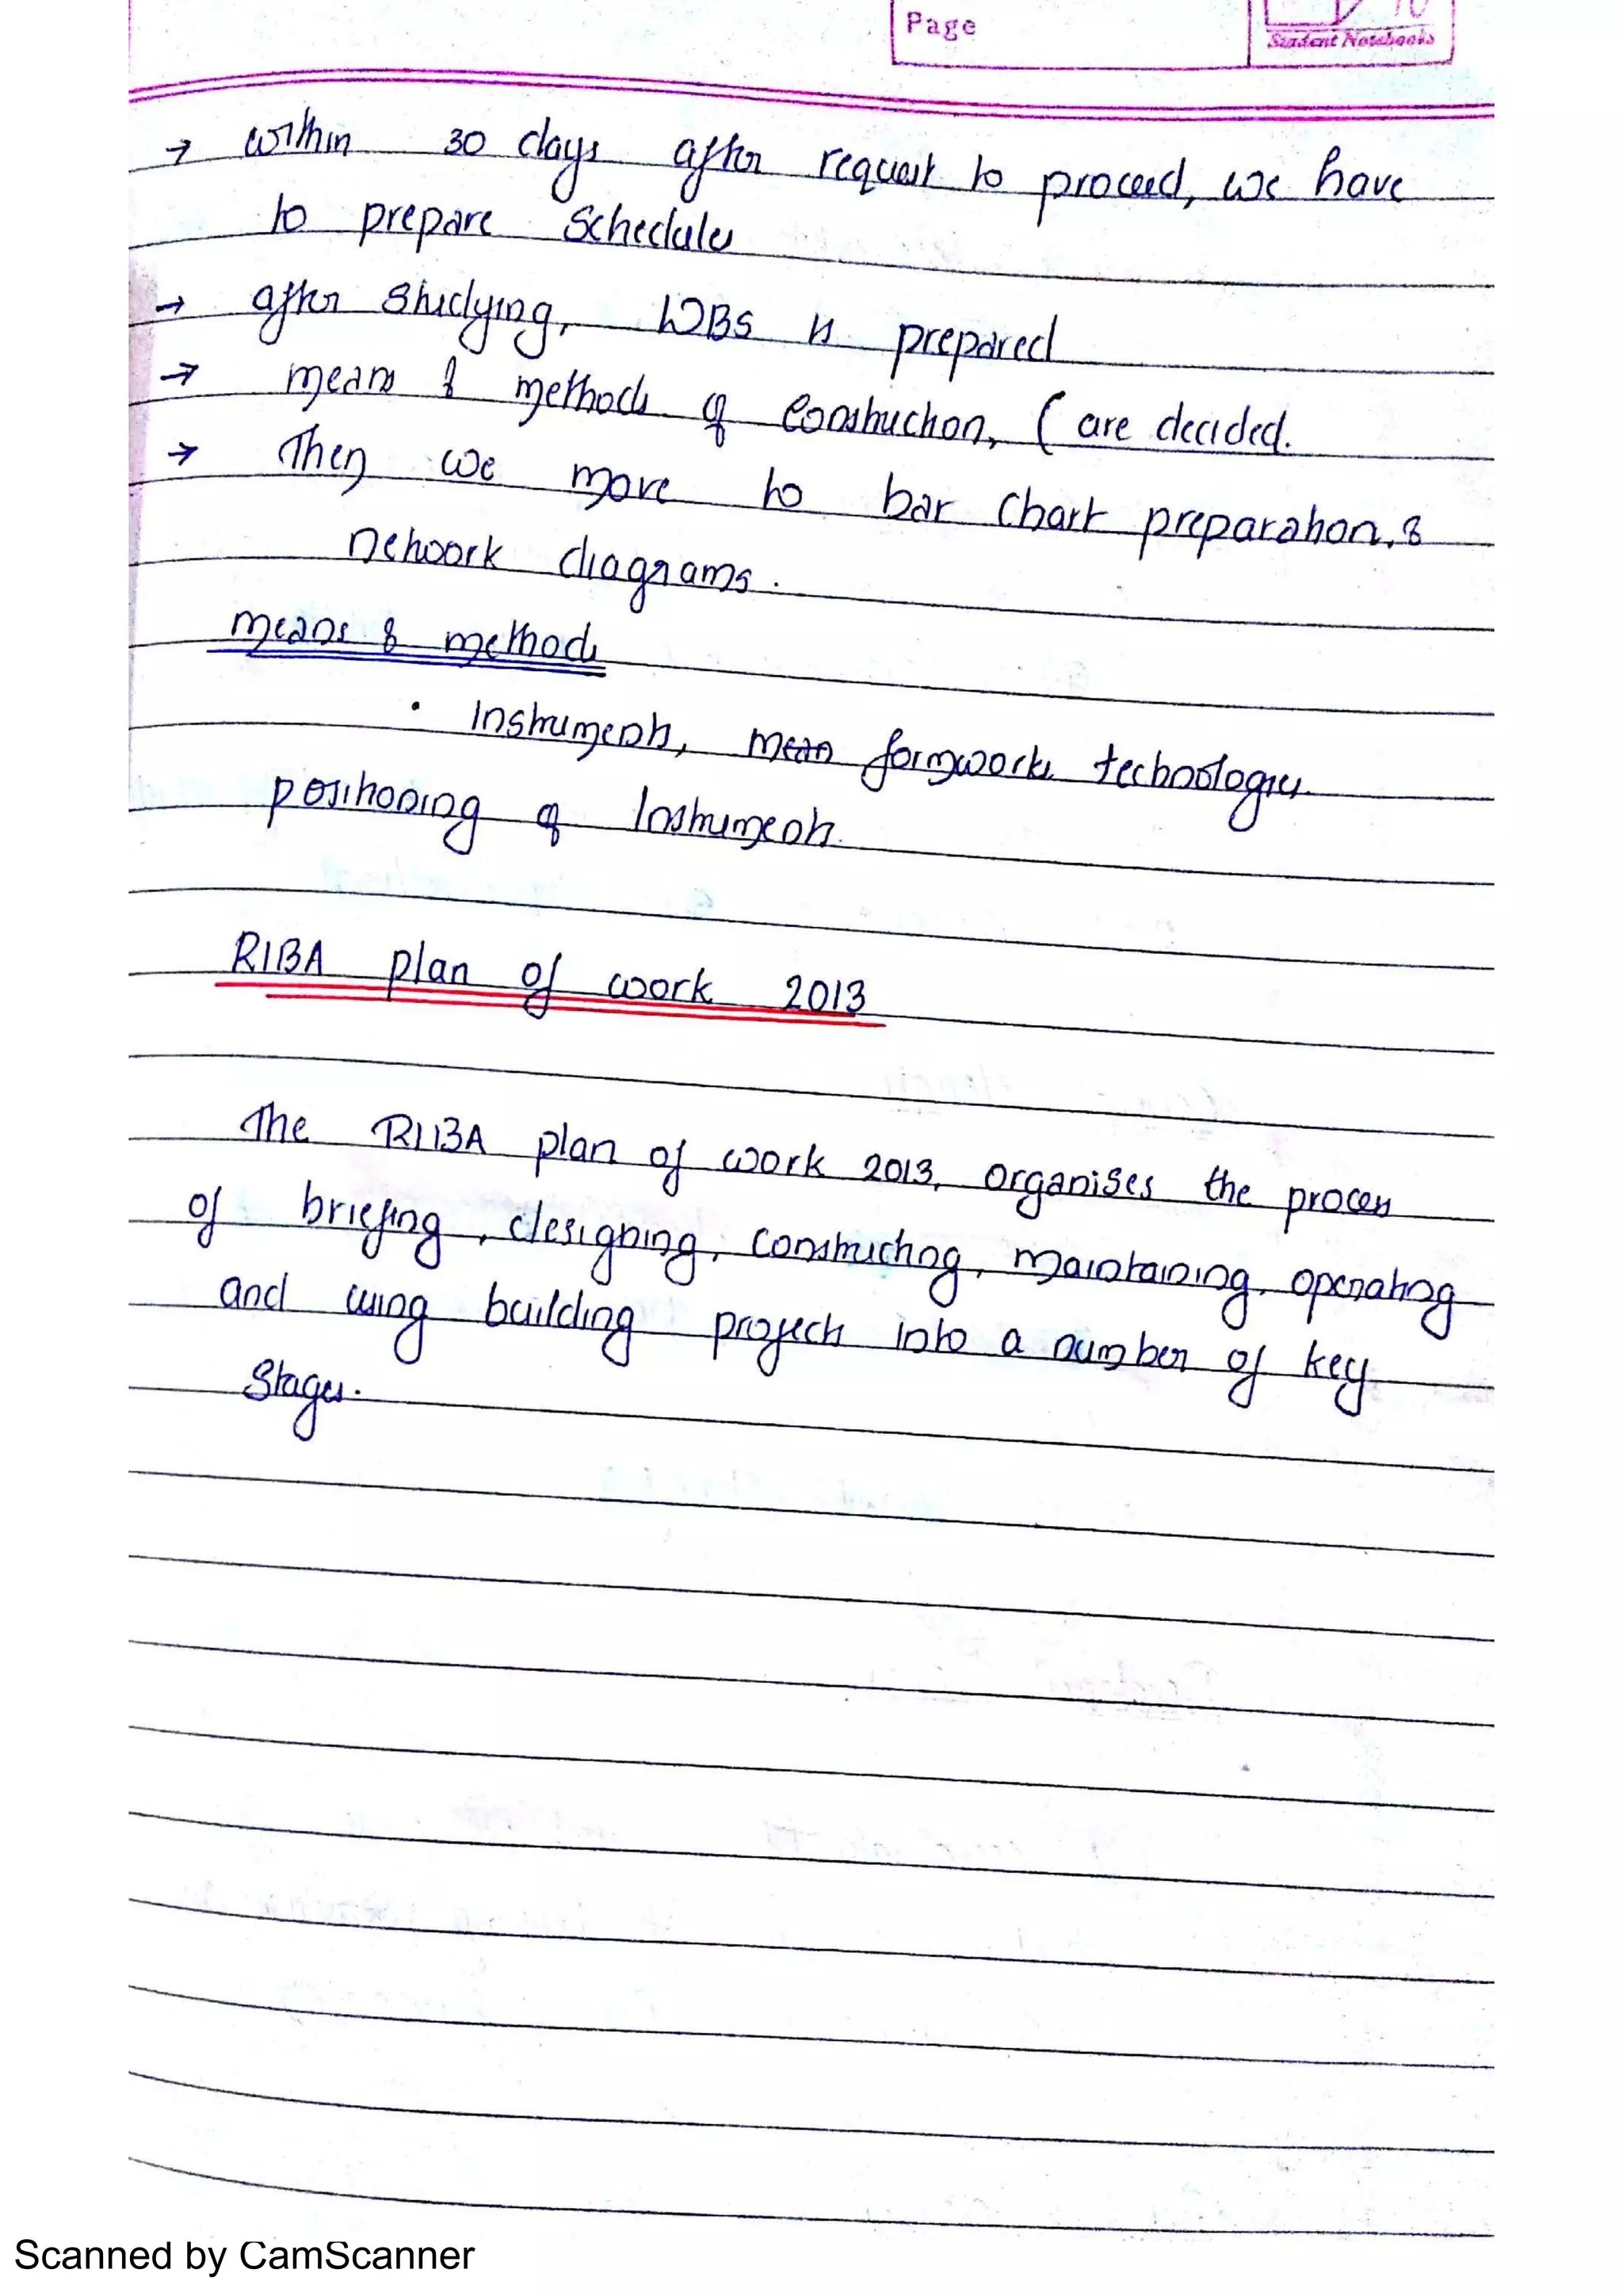 Page
Student Notebooks
→ within 30 days after request to proceed, we have
to prepare Schedules
→ after Studying, WBS is prepared
→ means & methods of Construction, ( are decided.
→ Then we move to bar Chart preparation, &
network diagrams.
means & methods
• Instruments, mean formworks technologies.
positioning of Instruments.
RIBA plan of work 2013
The RIBA plan of work 2013, organises the process
of briefing, designing, constructing, maintaining, operating
and using building projects into a number of key
Stages.
Scanned by CamScanner